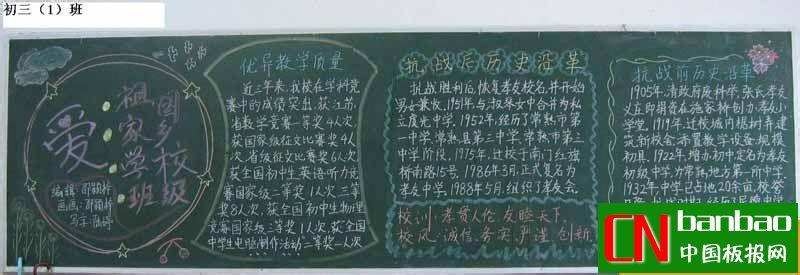 初三（1）班
爱:
祖国
家乡
学校
班级
编辑:
画画:
写字:
优异教学质量
近三年来,我校在学科竞
赛中的成绩突出,获江苏
省数学竞赛一等奖4人次
获国家级征文比赛奖4人
次,省级征文比赛奖6人次
获全国初中生英语听力竞
赛国家级二等奖1人次三等
奖8人次,获全国初中生物理
竞赛国家级三等奖1人次,获全国
中学生电脑制作活动二等奖一人次
抗战后历史沿革
抗战胜利后,恢复孝友校名,并开始
男女兼收,1951年与淑琴女中合并为私
立虞光中学,1952年,经历了常熟市第
一中学,常熟县第三中学,常熟市第三
中学阶段,1975年,迁校于南门红旗
桥南路15号,1986年3月,正式复名为
孝友中学,1988年5月,组织了孝友会.
校训:孝督人伦,友睦天下
校风:诚信、务实、严谨、创新
抗战前历史沿革
1905年,清政府废科举,张氏孝友
义庄即捐资在施家桥创办孝友小
学堂,1919年,迁校城内椐树弄建
筑新校舍,添置教学设备,规模
初具,1922年,增办初中定名为孝友
初级中学,为常熟地方第一所中学,
1932年,中学已占地20余亩,校舍
CN banbao
中国板报网